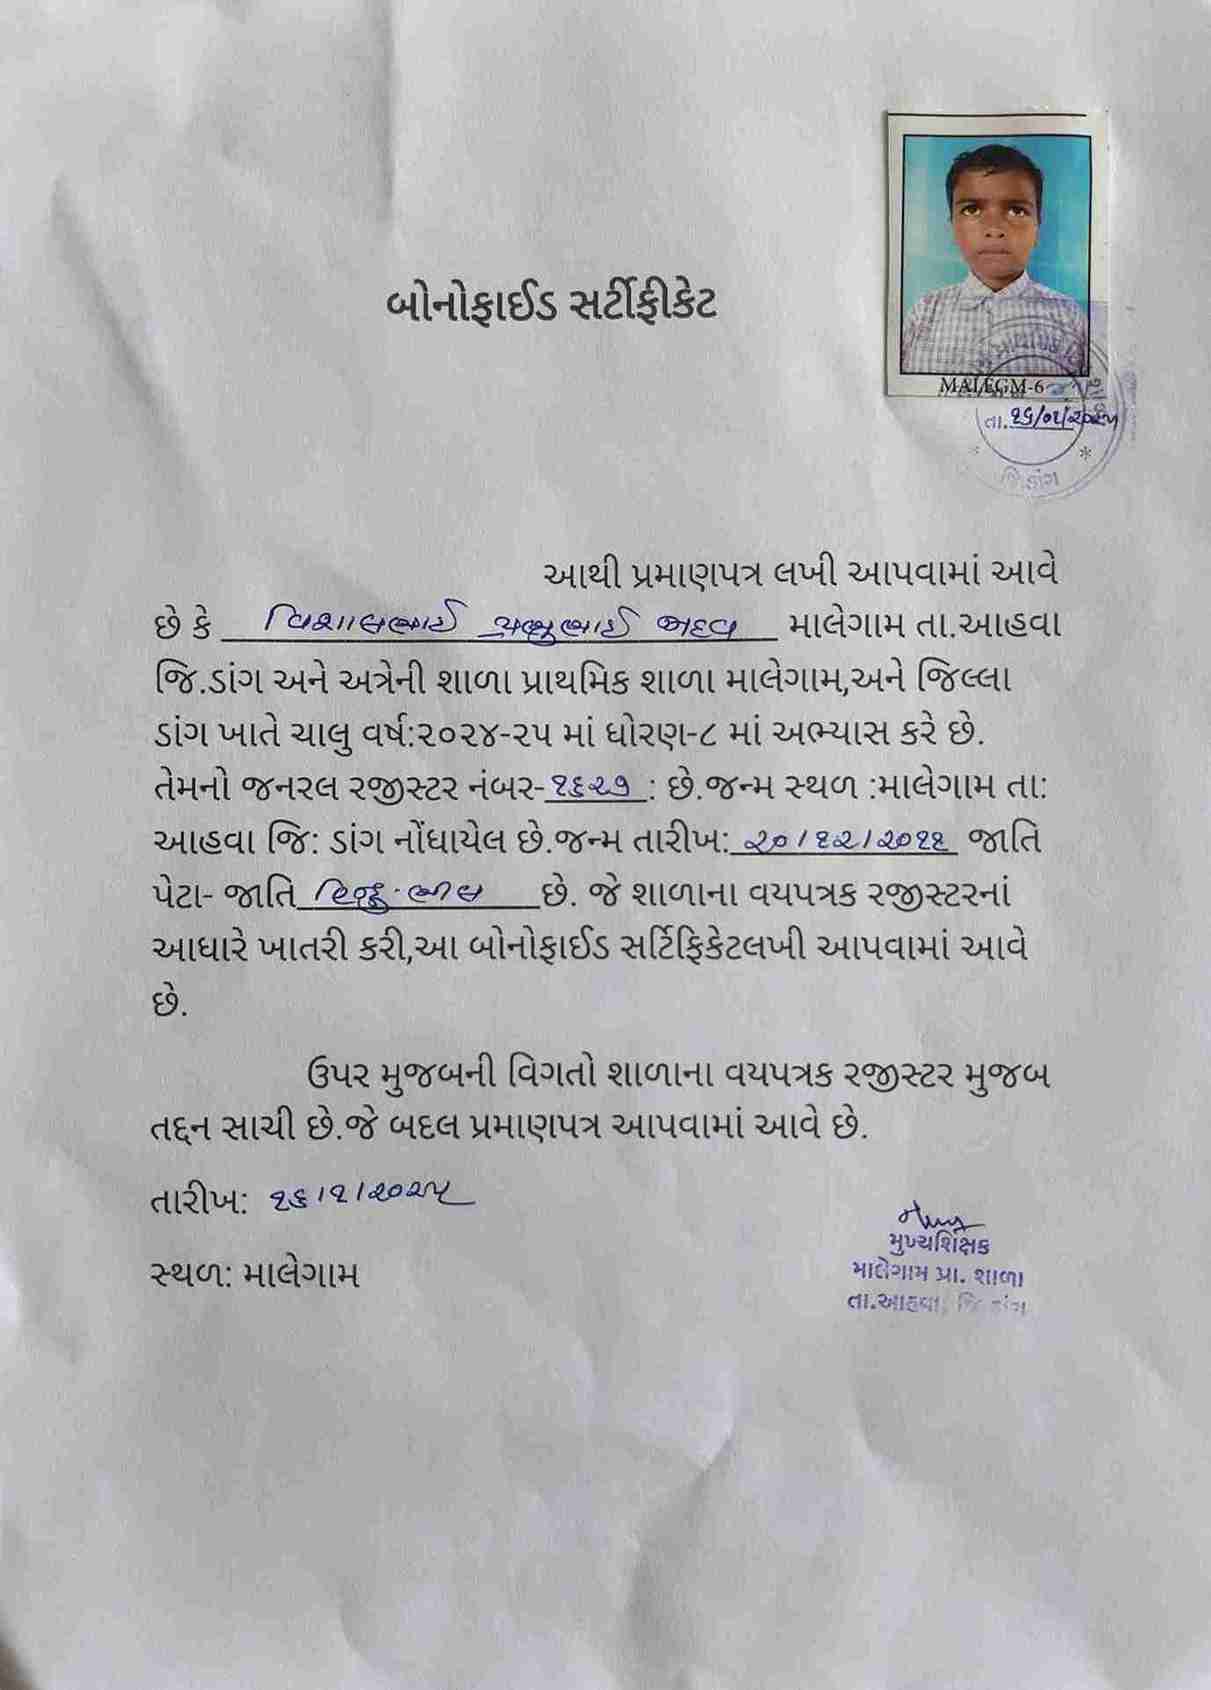 બોનોફાઈડ સર્ટીફીકેટ
MALEGM-6
તા.૧૬/૦૧/૨૦૨૫
જિ.ડાંગ
આથી પ્રમાણપત્ર લખી આપવામાં આવે
છે કે વિશાલભાઈ માલેગામ તા.આહવા
જિ.ડાંગ અને અત્રેની શાળા પ્રાથમિક શાળા માલેગામ,અને જિલ્લા
ડાંગ ખાતે ચાલુ વર્ષ:૨૦૨૪-૨૫ માં ધોરણ-૮ માં અભ્યાસ કરે છે.
તેમનો જનરલ રજીસ્ટર નંબર-૧૬૨૭ : છે.જન્મ સ્થળ :માલેગામ તા:
આહવા જિ: ડાંગ નોંધાયેલ છે.જન્મ તારીખ: ૨૦/૧૨/૨૦૧૧ જાતિ
પેટા- જાતિ હિન્દુ-ભીલ છે. જે શાળાના વયપત્રક રજીસ્ટરનાં
આધારે ખાતરી કરી,આ બોનોફાઈડ સર્ટિફિકેટલખી આપવામાં આવે
છે.
ઉપર મુજબની વિગતો શાળાના વયપત્રક રજીસ્ટર મુજબ
તદ્દન સાચી છે.જે બદલ પ્રમાણપત્ર આપવામાં આવે છે.
તારીખ: ૧૬/૧/૨૦૨૫
સ્થળ: માલેગામ
મુખ્યશિક્ષક
માલેગામ પ્રા. શાળા
તા.આહવા, જિ.ડાંગ